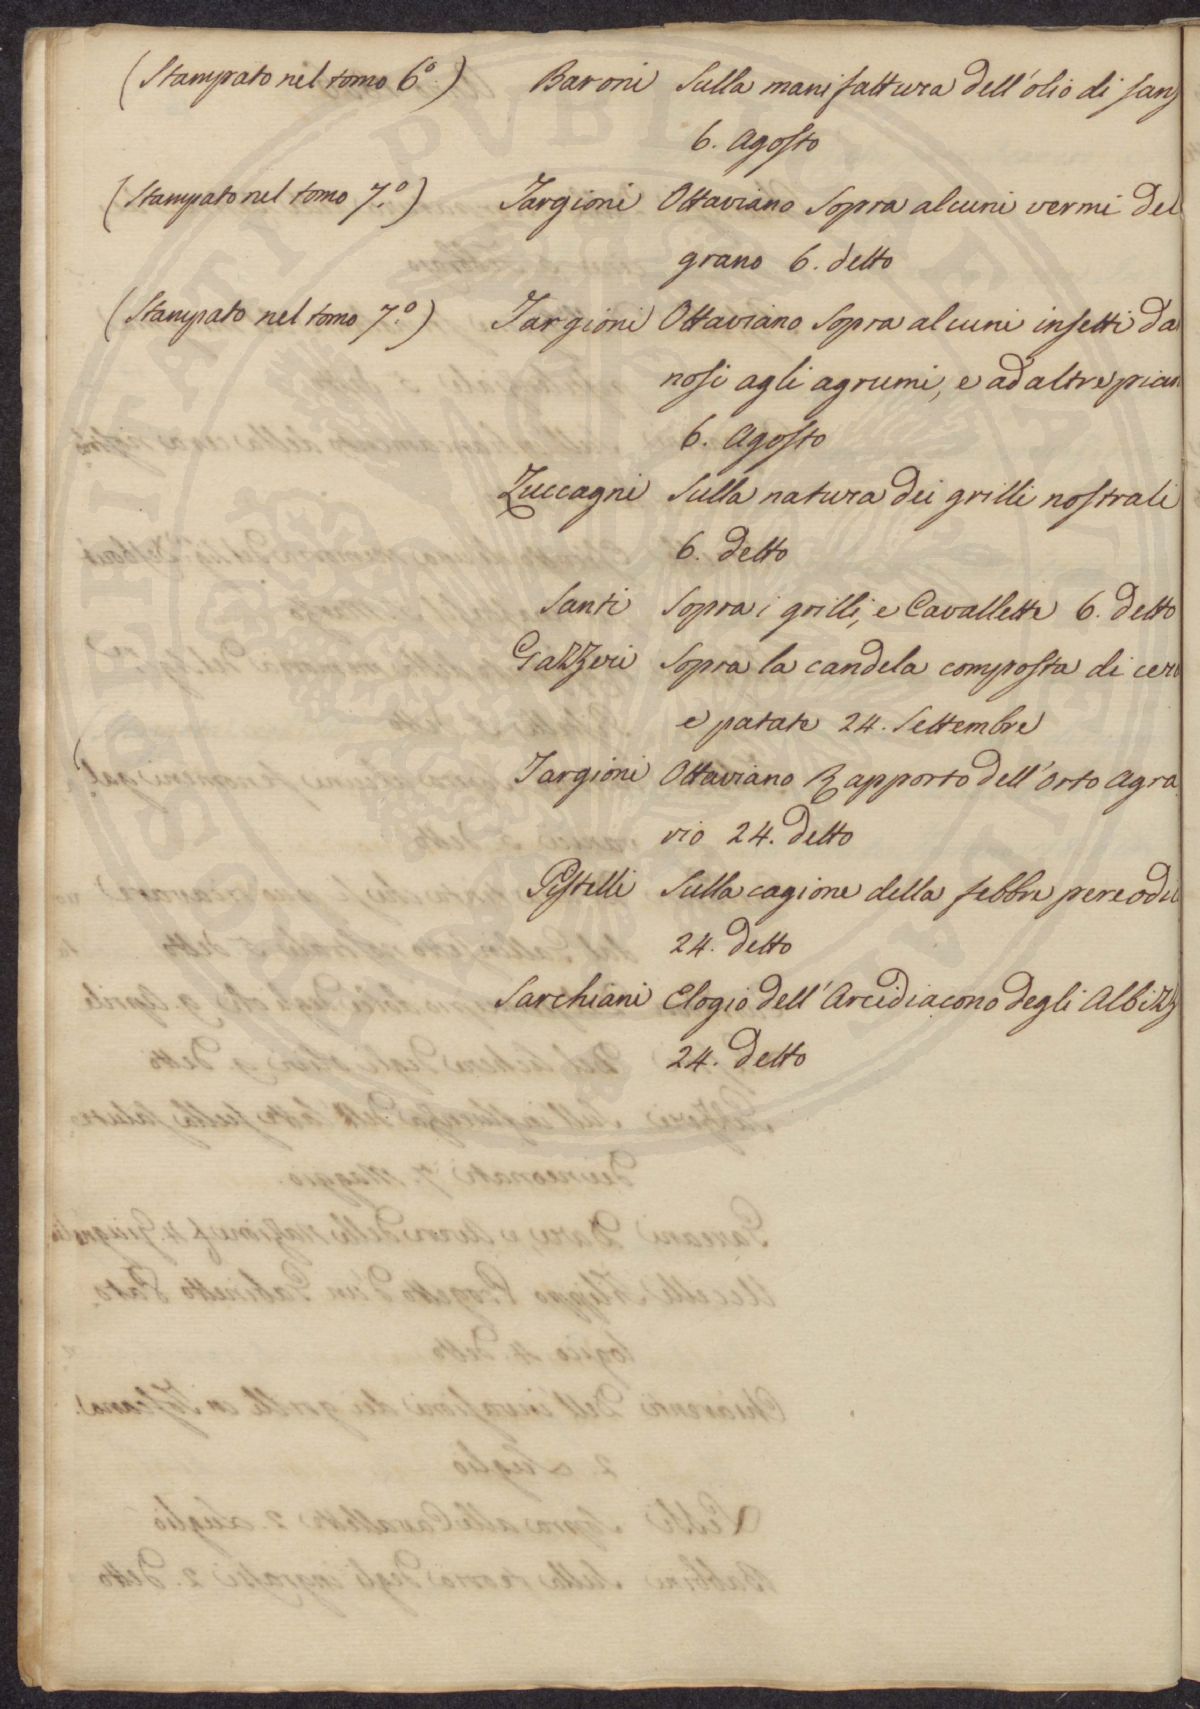 (Stampato nel tomo 6.º) Baroni Sulla manifattura dell'olio di sanz
6. Agosto
(Stampato nel tomo 7.º) Targioni Ottaviano Sopra alcuni vermi del
grano 6. detto
(Stampato nel tomo 7.º) Targioni Ottaviano Sopra alcuni insetti da
nosi agli agrumi, e ad altre pian
6. Agosto
Zuccagni Sulla natura dei grilli nostrali
6. detto
Santi Sopra i grilli, e Cavallette 6. detto
Gazzeri Sopra la candela composta di cera
e patate 24. Settembre
Targioni Ottaviano Rapporto dell'Orto Agra
rio 24. detto
Pistelli Sulla cagione della febbre pereodi
24. detto
Sarchiani Elogio dell'Arcidiacono degli Albizz
24. detto